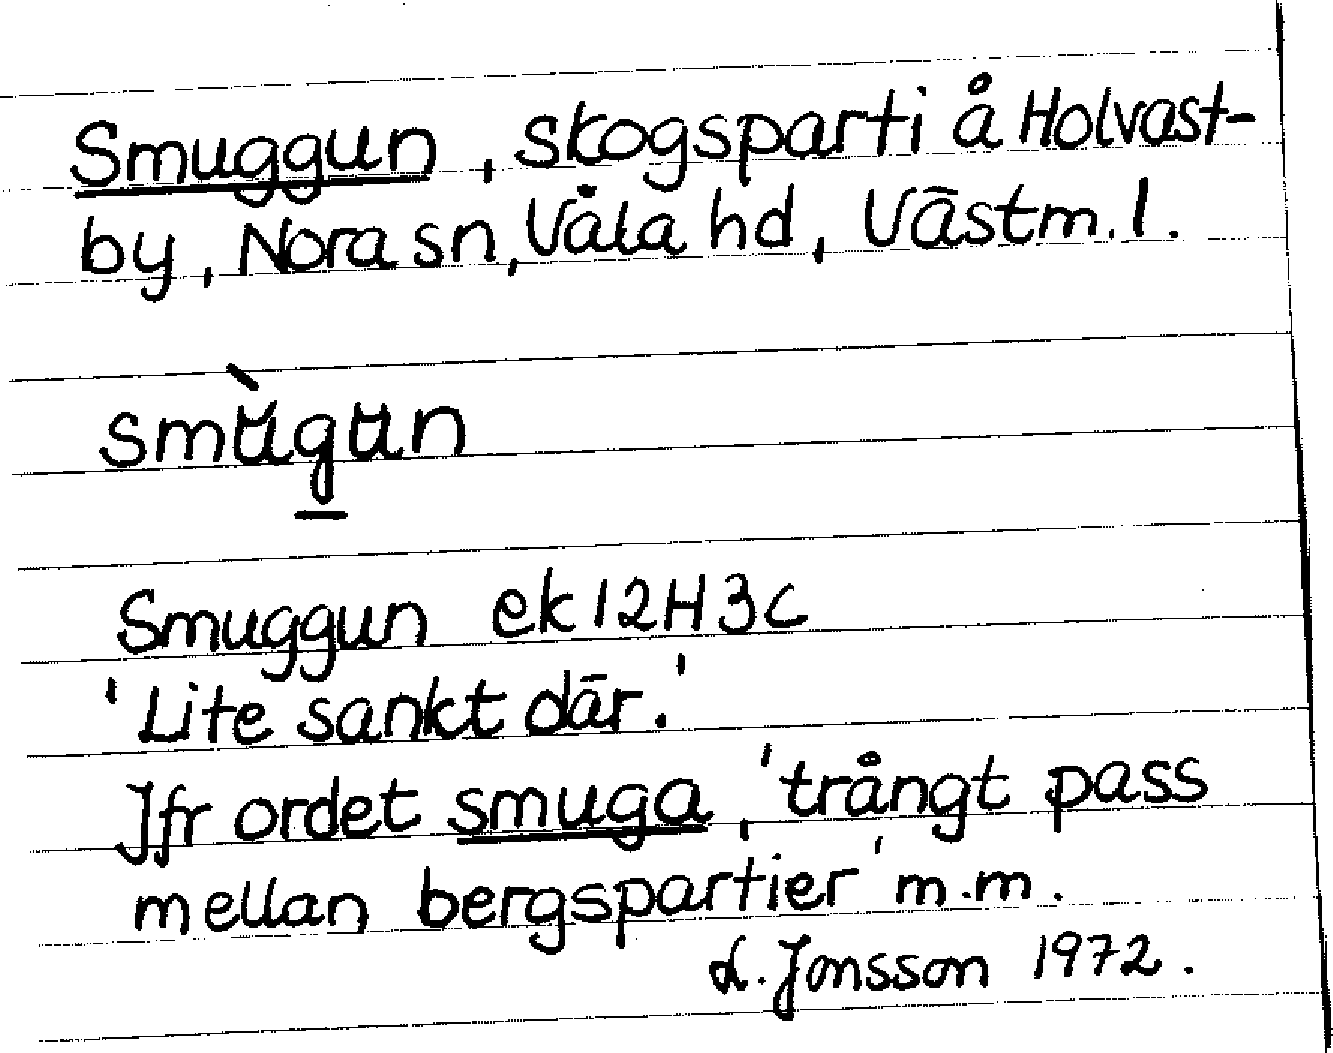 Smuggun, skogsparti å Holvast-
by, Nora sn, Våla hd, Västm. l.
smùgun
Smuggun ek 12H3c
'Lite sankt där.'
Jfr ordet smuga, 'trångt pass
mellan bergspartier' m.m.
L. Jonsson 1972.